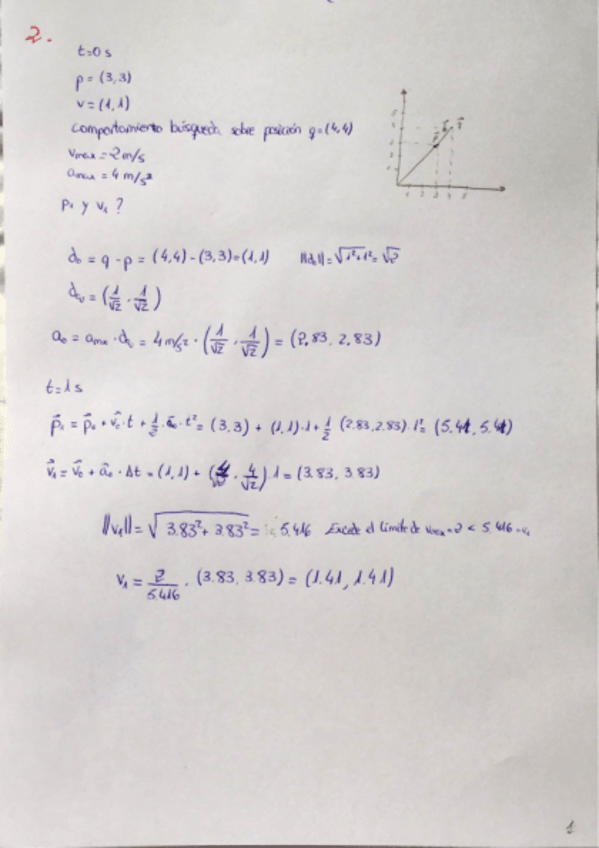 2.
t=0 s
p = (3,3)
v = (1,1)
comportamiento búsqueda sobre posición q = (4,4)
vmax = 2 m/s
amax = 4 m/s²
p₁ y v₁ ?
d₀ = q - p = (4,4) - (3,3) = (1,1) ||d₀|| = √1²+1² = √2
= (1/√2 , 1/√2)
a₀ = · = 4 m/s² · (1/√2 , 1/√2) = (2.83, 2.83)
t = 1 s
p⃗₁ = p⃗₀ + v⃗₀·t + 1/2·a⃗₀·t² = (3,3) + (1,1)·1 + 1/2 (2.83, 2.83)·1² = (5.41, 5.41)
v⃗₁ = v⃗₀ + a⃗₀·Δt = (1,1) + (4/√2 , 4/√2)·1 = (3.83, 3.83)
||v₁|| = √3.83² + 3.83² = 5.416 Excede el límite de vmax = 2 < 5.416 = v₁
v₁ = 2/5.416 · (3.83, 3.83) = (1.41, 1.41)
1